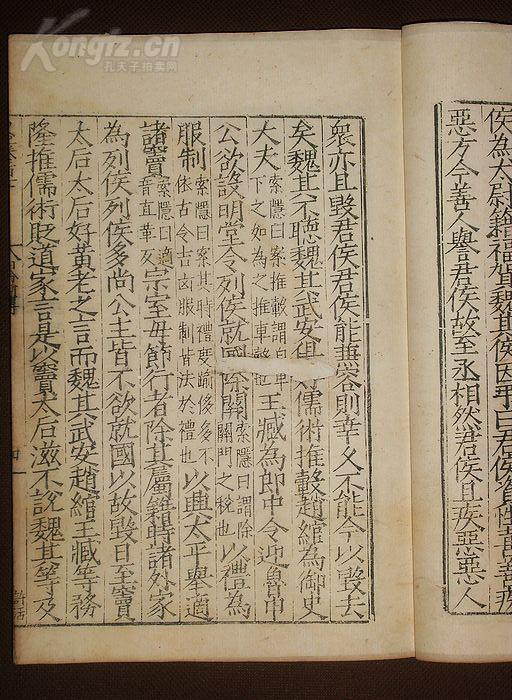 Kongfz.cn
孔夫子拍卖网
侯為太尉籍福賀魏其侯因弔曰君侯資性喜善疾
惡方今善人譽君侯故至丞相然君侯且疾惡惡人
衆亦且毀君侯君侯能兼容則幸久不能今以毀去
矣魏其不聽魏其武安俱好儒術推轂趙綰為御史
大夫
索隱曰案推轂謂自卑
下之如為之推車轂也
王臧為郎中令迎魯申
公欲設明堂令列侯就國除關
索隱曰謂除
關門之稅也
以禮為
服制
索隱曰案其時禮度踰侈多不
依古今吉凶服制皆法於禮也
以興太平舉適
諸竇
索隱曰適
音直革反
宗室毋節行者除其屬籍時諸外家
為列侯列侯多尚公主皆不欲就國以故毀日至竇
太后太后好黃老之言而魏其武安趙綰王臧等務
隆推儒術貶道家言是以竇太后滋不說魏其等及